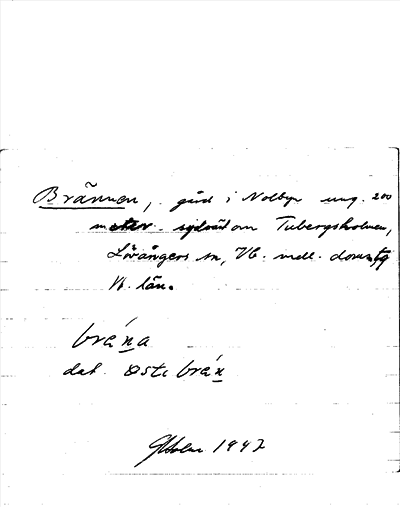 Brännen, gård i Nolbyn ung. 200
meter sydväst om Tubergsholmen,
Lövångers sn, Vb. mell. domsag
Vb. län.
bräna
dat. östi brän
GHolm 1947